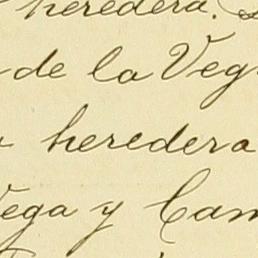 heredera.
de la Veg
heredera
Vega y Cam